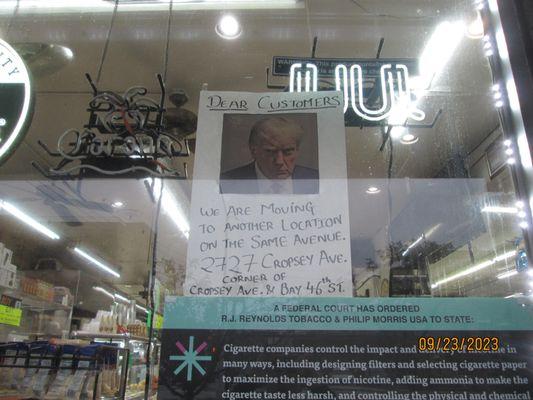 DEAR CUSTOMERS
WE ARE MOVING
TO ANOTHER LOCATION
ON THE SAME AVENUE.
2727 CROPSEY AVE.
CORNER OF
CROPSEY AVE. & BAY 46TH ST.
A FEDERAL COURT HAS ORDERED
R.J. REYNOLDS TOBACCO & PHILIP MORRIS TO STATE:
Cigarette companies control the impact and delivery of nicotine in
many ways, including designing filters and selecting cigarette paper
to maximize the ingestion of nicotine, adding ammonia to make the
cigarette taste less harsh, and controlling the physical and chemical
09/23/2023